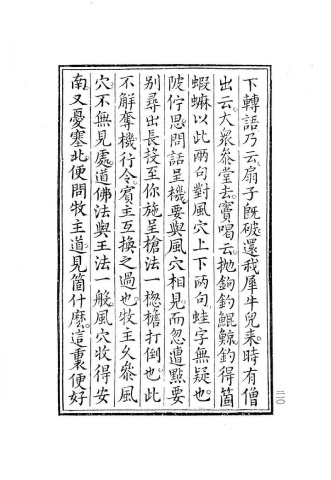 下轉語乃云扇子既破還我犀牛兒來時有僧
出云大衆參堂去寶喝云抛鉤釣鯤鯨釣得箇
蝦蟆以此兩句對風穴上下兩句蛙字無疑也
陂佇思問話呈機要與風穴相見而忽遭點要
別尋出長茭至你施呈槍法一摠檐打倒也此
不解奪機行令賓主互換之過也牧主久參風
穴不無見處道佛法與王法一般風穴收得安
南又憂塞北便問牧主道見箇什麽這裏便好
二〇